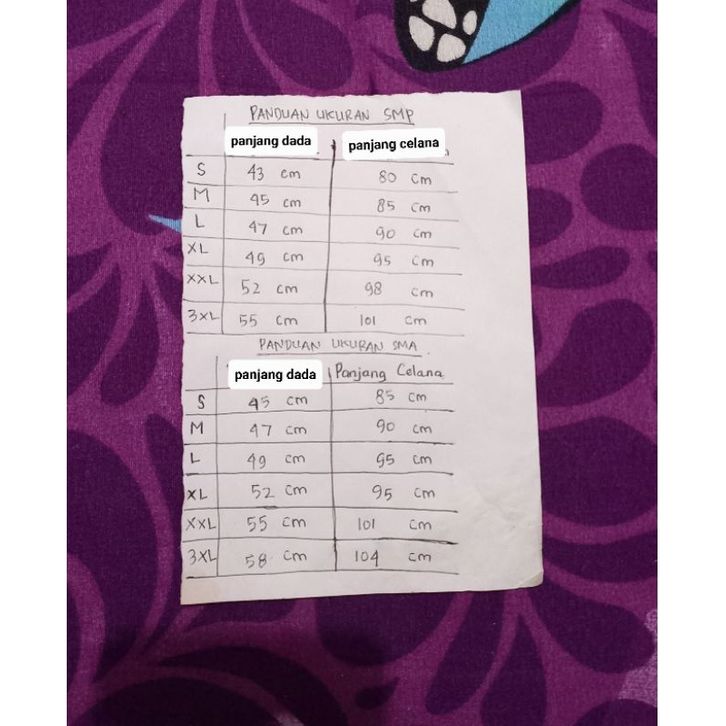 PANDUAN UKURAN SMP
panjang dada panjang celana
S 43 cm 80 cm
M 45 cm 85 cm
L 47 cm 90 cm
XL 49 cm 95 cm
XXL 52 cm 98 cm
3XL 55 cm 101 cm
PANDUAN UKURAN SMA
panjang dada Panjang Celana
S 45 cm 85 cm
M 47 cm 90 cm
L 49 cm 95 cm
XL 52 cm 95 cm
XXL 55 cm 101 cm
3XL 58 cm 104 cm